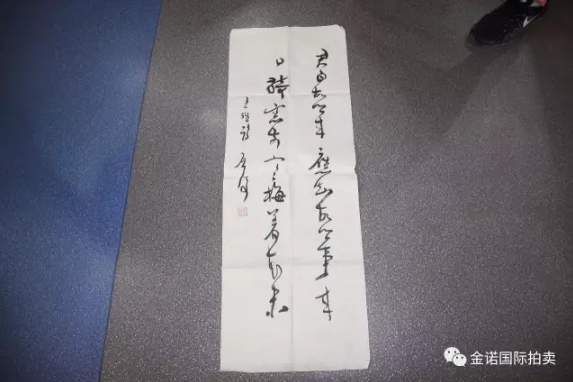 君自故乡来應知故乡事来
日绮窗前寒梅着花未
王维诗
金诺国际拍卖